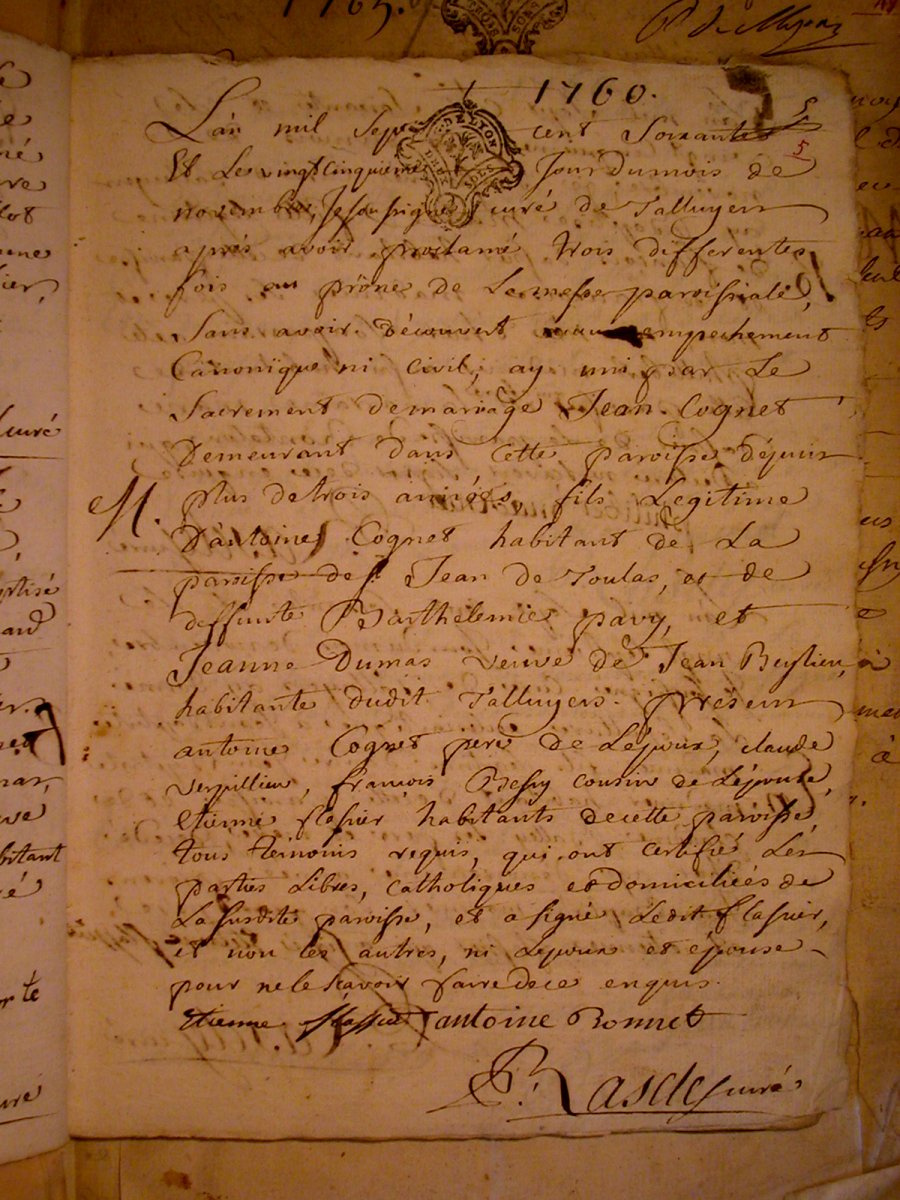 1765.
1760.
L'an mil sept cent Soixante
5
Et Le vingtcinquieme Jour dumois de
novembre, Je soussigné curé de Talluyers
aprés avoir proclamé trois differentes
fois au prône de La messe paroissiale,
Sans avoir découvert empechement
Canonique ni civil, ay uni par Le
Sacrement de mariage Jean Cognet
Demeurant dans Cette paroisse depuis
M. plus de trois années, fils Legitime
D'antoine Cognet habitant de La
paroisse de st Jean de Toulas, et de
deffunte Barthelemie pavy, et
Jeanne Dumas veuve de Jean
habitante dudit Talluyers. présens
antoine Cognet pere de L'époux, claude
verpillieu, francois Bessy cousin de L'épouse,
etienne flasier habitants decette paroisse,
tous témoins requis, qui ont certifié Les
parties Libres, catholiques et domiciliées de
La susdite paroisse, et a signé Ledit flasier,
et non les autres, ni L'époux et épouse
pour ne le scavoir faire de ce enquis.
Etienne flasier antoine Bonnet
curé